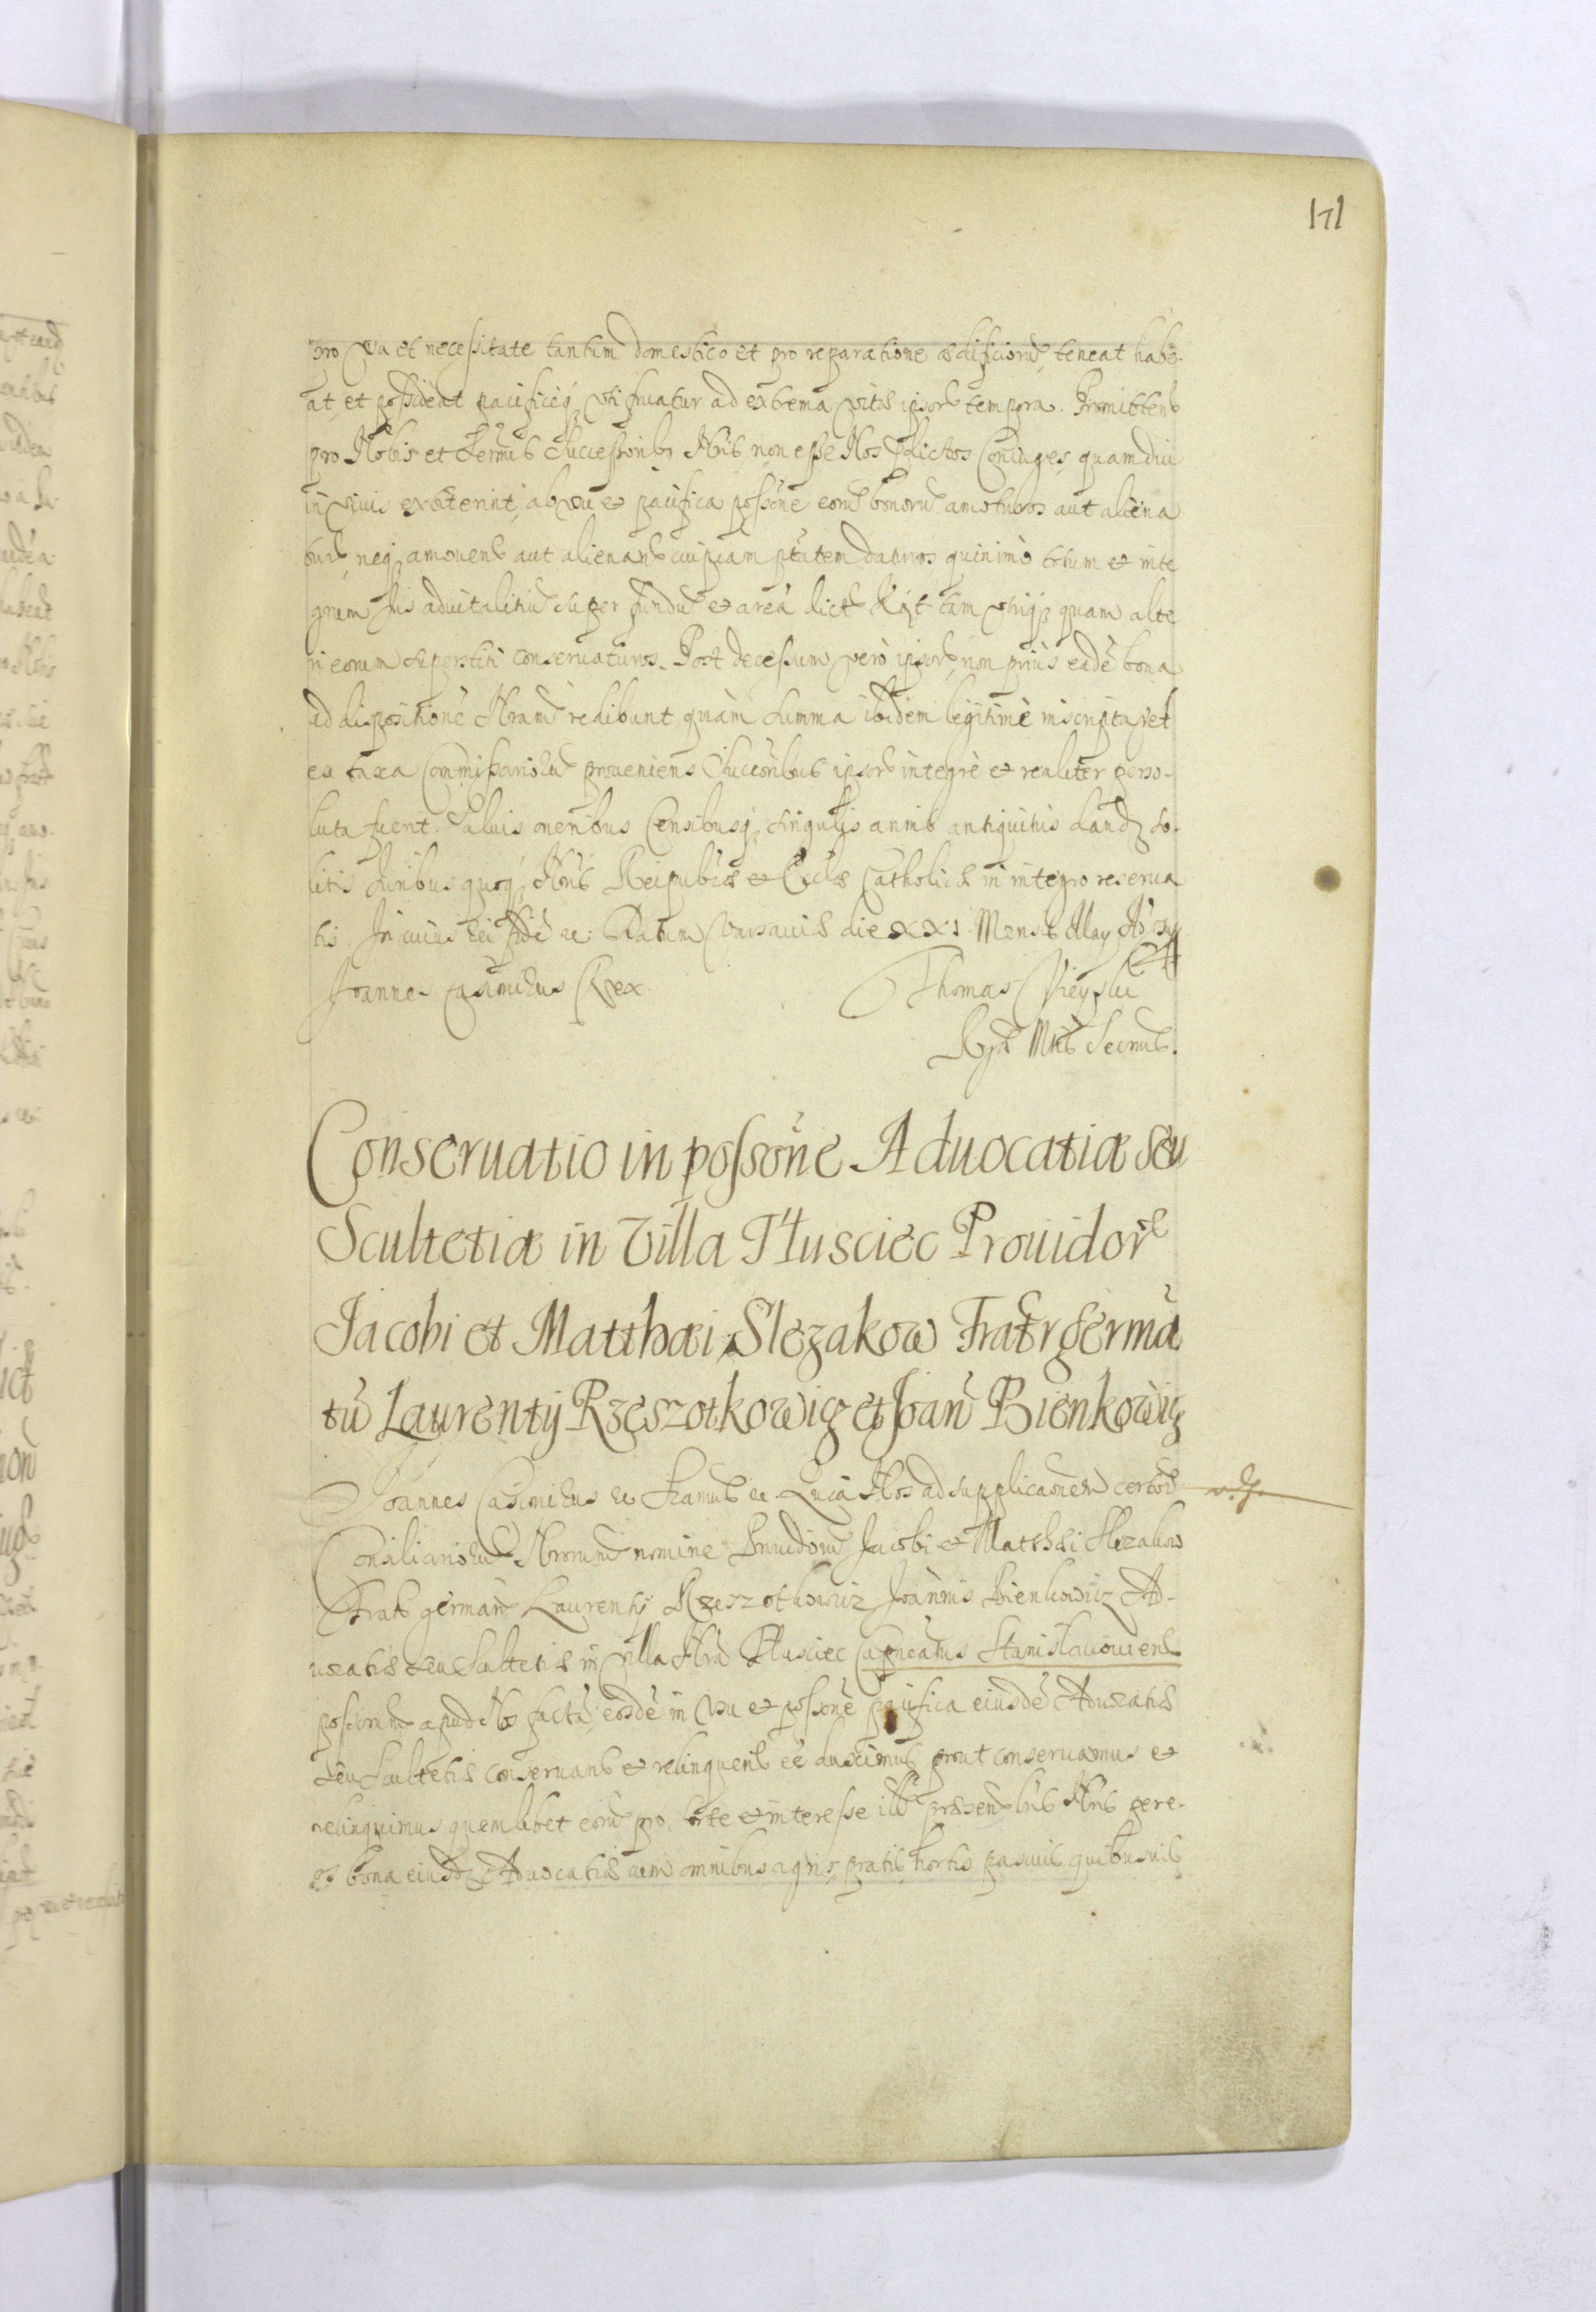 171
pro Usu et necessitate tantum domestico et pro reparatione ædificiorũ, teneat habe-
at, et possideat pacificeq₃ Uti fruatur ad extrema vitæ ipsorũ tempora. Promittens
pro Nobis et Sermis Successoribq Nris, non esse Nos dictos Coniuges, quamdiu
in vivis extiterint, ab usu et pacifica possõne eorũ bonorũ amoturos aut aliena
turos, neq₃ amovend aut alienand cuipiam ptatem daturos, quinimò totum et inte
grum Jus advitalitiũ super fundũ et areã dict tam utriq₃ quam alte
ri eorum superstiti conservaturos. Post decessum verò ipsorũ, non priùs eadẽ bona
ad dispositionẽ Nram redibunt quàm summa ibidem legitimè inscripta, vel
ex taxa Commissariorũ proveniens Succoribus ipsorũ integrè et realiter perso-
luta fuerit. Salvis oneribus Censibusq₃ singulis annis antiquitus dand so-
litis Juribus quoq₃ Nris Reipublcæ et Ecclæ Catholicæ in integro reserva
tis. In cuius rei fidẽ &. Datum Varsaviæ die XXI. Mensis May Aõ
Joannes Casimirus Rex. Thomas Vieyski
Rgæ Mtis Secrius.
Conseruatio in possõne Aduocatiæ seu
Scultetiæ in Villa Tłusciec Prouidorũ
Jacobi et Matthæi Slezakow Fratr germa
tũ Laurentij Rzeszotkowicz et Joan̄ Bienkowicz
Joannes Casimirus & Sramus &. Quia Nos ad supplicaõnem certorũ
Consiliariorũ Nrorum nomine Providorũ Jacobi et Matthæi Slezakow
Fratr german Laurentij Rzeszotkowicz Joannis Bienkowicz Ad-
vocatiæ seu Scultetiæ in Villa Nra Tłusciec Capneatus Stanislavowiens
possorum apud Nos factã, eosdẽ in Usu et possõne pacifica eiusdẽ Advocatiæ
seu Scultetiæ conservand et relinquend eẽ duximus prout conservamus et
relinquimus quemlibet eorũ pro sorte et interesse illi præsend lris Nris gere-
os bona eiusdẽ Advocatiæ cum omnibus agris, pratis, hortis pascuis quibusvis